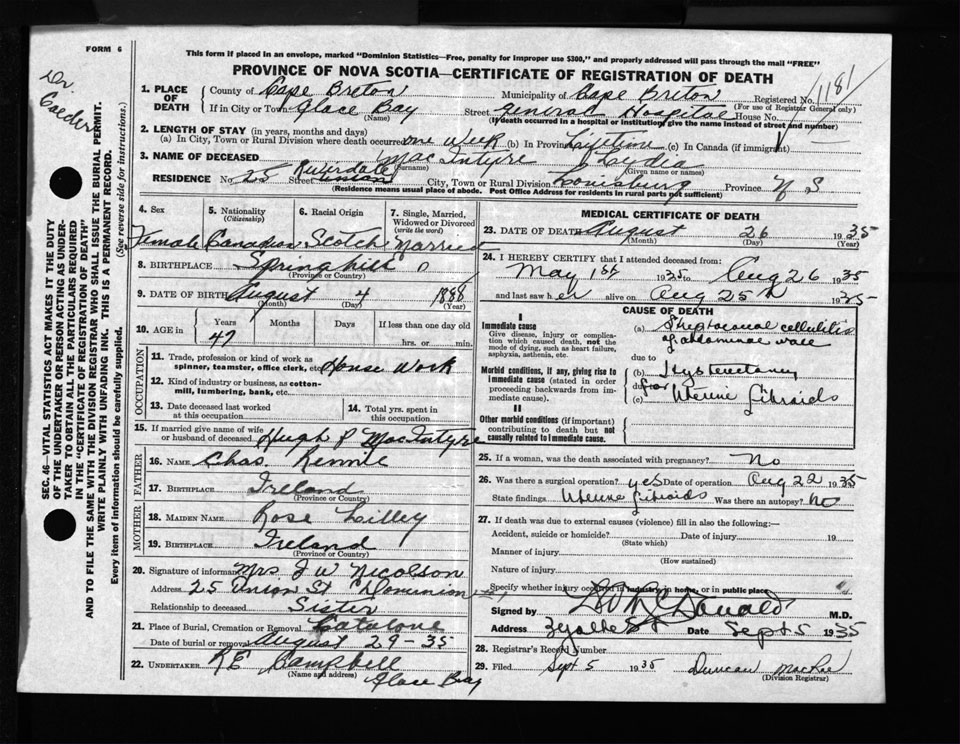 FORM 6
This form if placed in an envelope, marked "Dominion Statistics—Free, penalty for improper use $300," and properly addressed will pass through the mail "FREE"
PROVINCE OF NOVA SCOTIA—CERTIFICATE OF REGISTRATION OF DEATH
Dr.
SEC. 46—VITAL STATISTICS ACT MAKES IT THE DUTY
OF THE UNDERTAKER OR PERSON ACTING AS UNDER-
TAKER TO OBTAIN ALL THE PARTICULARS REQUIRED
IN THE "CERTIFICATE OF REGISTRATION OF DEATH"
AND TO FILE THE SAME WITH THE DIVISION REGISTRAR WHO SHALL ISSUE THE BURIAL PERMIT.
WRITE PLAINLY WITH UNFADING INK. THIS IS A PERMANENT RECORD.
Every item of information should be carefully supplied.
(See reverse side for instructions.)
1. PLACE OF DEATH
County of Cape Breton Municipality of Cape Breton Registered No. 1181
(For use of Registrar General only)
If in City or Town Glace Bay Street General Hospital House No.
(Name) (If death occurred in a hospital or institution, give the name instead of street and number)
2. LENGTH OF STAY (in years, months and days)
(a) In City, Town or Rural Division where death occurred one week (b) In Province Lifetime (c) In Canada (if immigrant)
3. NAME OF DECEASED MacIntyre Lydia
(Surname) (Given name or names)
RESIDENCE No. 25 Street Riverdale City, Town or Rural Division Louisburg Province N S
(Residence means usual place of abode. Post Office Address for residents in rural parts not sufficient)
4. Sex 5. Nationality (Citizenship) 6. Racial Origin 7. Single, Married, Widowed or Divorced (write the word)
Female Canadian Scotch Married
8. BIRTHPLACE Springhill
(Province or Country)
9. DATE OF BIRTH August 4 1888
(Month) (Day) (Year)
10. AGE in Years Months Days If less than one day old
47 hrs. or min.
OCCUPATION
11. Trade, profession or kind of work as spinner, teamster, office clerk, etc. House Work
12. Kind of industry or business, as cotton-mill, lumbering, bank, etc.
13. Date deceased last worked at this occupation 14. Total yrs. spent in this occupation
15. If married give name of wife or husband of deceased Hugh P MacIntyre
FATHER
16. NAME Chas. Rennie
17. BIRTHPLACE Ireland
(Province or Country)
MOTHER
18. MAIDEN NAME Rose Lilley
19. BIRTHPLACE Ireland
(Province or Country)
20. Signature of informant Mrs J W Nicolson
Address 25 Union St Dominion
Relationship to deceased Sister
21. Place of Burial, Cremation or Removal Catalone
Date of burial or removal August 29-35
22. UNDERTAKER R E Campbell
(Name and address) Glace Bay
MEDICAL CERTIFICATE OF DEATH
23. DATE OF DEATH August 26 1935
(Month) (Day) (Year)
24. I HEREBY CERTIFY that I attended deceased from:
May 1st 1935 to Aug 26 1935
and last saw her alive on Aug 25th 1935
CAUSE OF DEATH
I
Immediate cause
Give disease, injury or complication which caused death, not the mode of dying, such as heart failure, asphyxia, asthenia, etc.
(a) Streptococcal cellulitis
of abdominal wall
due to
Morbid conditions, if any, giving rise to immediate cause (stated in order proceeding backwards from immediate cause).
(b) Hysterectomy
due to for
(c) Uterine Fibroids
II
Other morbid conditions (if important) contributing to death but not causally related to immediate cause.
25. If a woman, was the death associated with pregnancy? No
26. Was there a surgical operation? yes Date of operation Aug 22 1935
State findings Uterine fibroids Was there an autopsy? No
27. If death was due to external causes (violence) fill in also the following:—
Accident, suicide or homicide? Date of injury 19
(State which)
Manner of injury
(How sustained)
Nature of injury
Specify whether injury occurred in industry, in home, or in public place
Signed by McDonald M.D.
Address Date Sept 5 1935
28. Registrar's Record Number
29. Filed Sept 5 1935 Duncan MacRae
(Division Registrar)